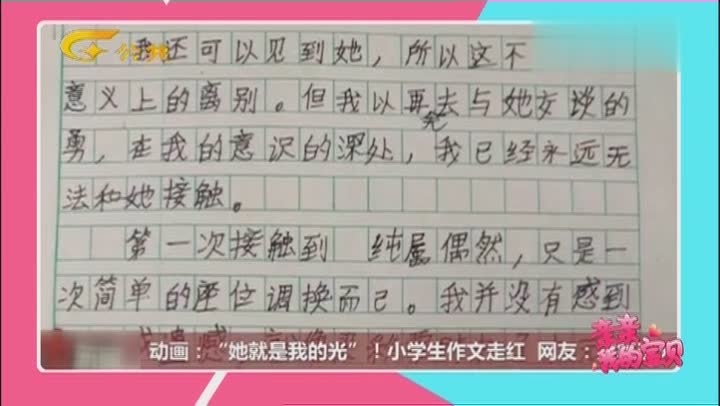 公共
我还可以见到她，所以这不
意义上的离别。但我以再去与她交谈的
勇，在我的意识的深处，我已经永远无
法和她接触。
第一次接触到 纯属偶然，只是一
次简单的座位调换而已。我并没有感到
动画：“她就是我的光”！小学生作文走红 网友：
亲亲
我的宝贝